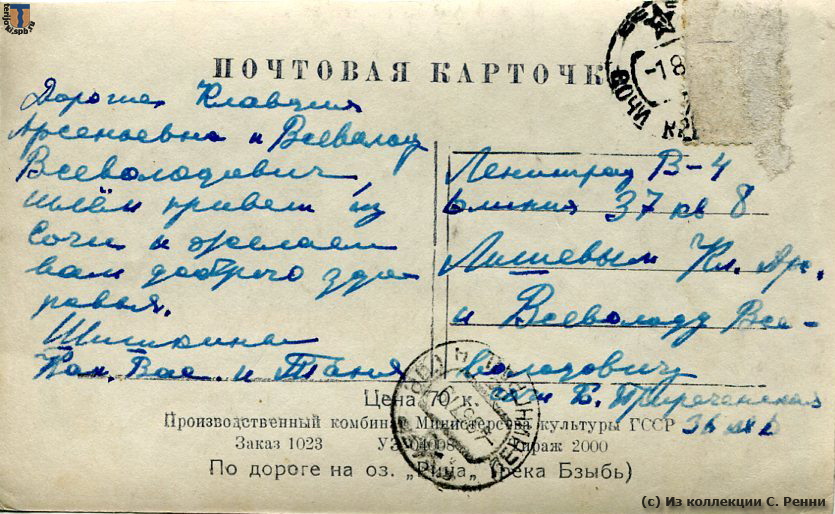 terijoki.spb.ru
ПОЧТОВАЯ КАРТОЧК
СОЧИ
-7 8
Дорогие Клавдия
Арсеньевна и Всеволод
Всеволодович,
шлём привет из
Сочи и желаем
вам доброго здо-
ровья.
Шишкина
Кап. Вас. и Таня
Ленинград В-4
6 линия 37 кв 8
Лишевым Кл. Ар.
и Всеволоду Все-
володовичу
Сочи Б.
36
ЛЕНИНГРАД
Цена 70 к.
Производственный комбинат Министерства культуры ГССР
Заказ 1023 УЭ 04098 Тираж 2000
По дороге на оз. „Рица„ (река Бзыбь)
(c) Из коллекции С. Ренни